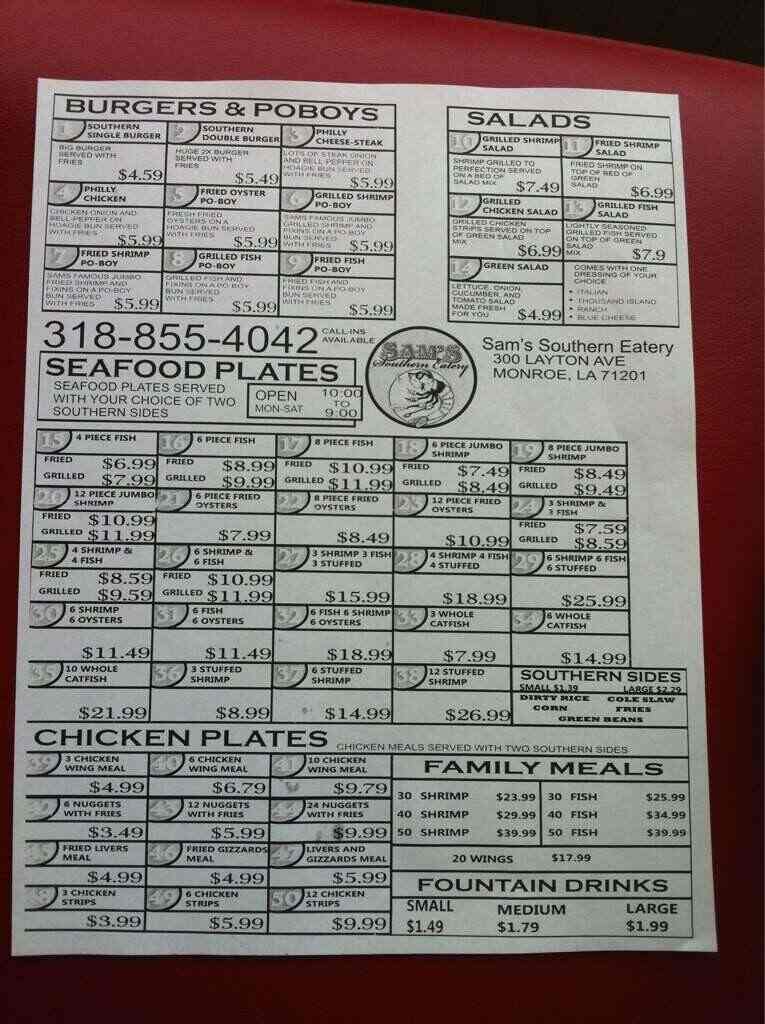 BURGERS & POBOYS
1 SOUTHERN SINGLE BURGER
BIG BURGER
SERVED WITH
FRIES
$4.59
2 SOUTHERN DOUBLE BURGER
HUGE 2X BURGER
SERVED WITH
FRIES
$5.49
3 PHILLY CHEESE-STEAK
LOTS OF STEAK ONION
AND BELL PEPPER ON
HOAGIE BUN SERVED
WITH FRIES
$5.99
4 PHILLY CHICKEN
CHICKEN ONION AND
BELL PEPPER ON
HOAGIE BUN SERVED
WITH FRIES
$5.99
5 FRIED OYSTER PO-BOY
FRESH FRIED
OYSTERS ON A
HOAGIE BUN SERVED
WITH FRIES
$5.99
6 GRILLED SHRIMP PO-BOY
SAMS FAMOUS JUMBO
GRILLED SHRIMP AND
FIXINS ON A PO-BOY
BUN SERVED
WITH FRIES
$5.99
7 FRIED SHRIMP PO-BOY
SAMS FAMOUS JUMBO
FRIED SHRIMP AND
FIXINS ON A PO-BOY
BUN SERVED
WITH FRIES
$5.99
8 GRILLED FISH PO-BOY
GRILLED FISH AND
FIXINS ON A PO BOY
BUN SERVED
WITH FRIES
$5.99
9 FRIED FISH PO-BOY
FRIED FISH AND
FIXINS ON A PO-BOY
BUN SERVED
WITH FRIES
$5.99
SALADS
10 GRILLED SHRIMP SALAD
SHRIMP GRILLED TO
PERFECTION SERVED
ON A BED OF
SALAD MIX
$7.49
11 FRIED SHRIMP SALAD
FRIED SHRIMP ON
TOP OF BED OF
GREEN
SALAD
$6.99
12 GRILLED CHICKEN SALAD
GRILLED CHICKEN
STRIPS SERVED ON TOP
OF GREEN SALAD
MIX
$6.99
13 GRILLED FISH SALAD
LIGHTLY SEASONED
GRILLED FISH SERVED
ON TOP OF GREEN
SALAD
MIX
$7.9
14 GREEN SALAD
LETTUCE, ONION,
CUCUMBER, AND
TOMATO SALAD
MADE FRESH
FOR YOU
$4.99
COMES WITH ONE
DRESSING OF YOUR
CHOICE
• ITALIAN
• THOUSAND ISLAND
• RANCH
• BLUE CHEESE
318-855-4042
CALL-INS
AVAILABLE
SAM'S
Southern Eatery
Sam's Southern Eatery
300 LAYTON AVE
MONROE, LA 71201
SEAFOOD PLATES
SEAFOOD PLATES SERVED
WITH YOUR CHOICE OF TWO
SOUTHERN SIDES
OPEN
MON-SAT
10:00
TO
9:00
15 4 PIECE FISH
FRIED $6.99
GRILLED $7.99
16 6 PIECE FISH
FRIED $8.99
GRILLED $9.99
17 8 PIECE FISH
FRIED $10.99
GRILLED $11.99
18 6 PIECE JUMBO SHRIMP
FRIED $7.49
GRILLED $8.49
19 8 PIECE JUMBO SHRIMP
FRIED $8.49
GRILLED $9.49
20 12 PIECE JUMBO SHRIMP
FRIED $10.99
GRILLED $11.99
21 6 PIECE FRIED OYSTERS
$7.99
22 8 PIECE FRIED OYSTERS
$8.49
23 12 PIECE FRIED OYSTERS
$10.99
24 3 SHRIMP & 3 FISH
FRIED $7.59
GRILLED $8.59
25 4 SHRIMP & 4 FISH
FRIED $8.59
GRILLED $9.59
26 6 SHRIMP & 6 FISH
FRIED $10.99
GRILLED $11.99
27 3 SHRIMP 3 FISH 3 STUFFED
$15.99
28 4 SHRIMP 4 FISH 4 STUFFED
$18.99
29 6 SHRIMP 6 FISH 6 STUFFED
$25.99
30 6 SHRIMP 6 OYSTERS
$11.49
31 6 FISH 6 OYSTERS
$11.49
32 6 FISH 6 SHRIMP 6 OYSTERS
$18.99
33 3 WHOLE CATFISH
$7.99
34 6 WHOLE CATFISH
$14.99
35 10 WHOLE CATFISH
$21.99
36 3 STUFFED SHRIMP
$8.99
37 6 STUFFED SHRIMP
$14.99
38 12 STUFFED SHRIMP
$26.99
SOUTHERN SIDES
SMALL $1.39 LARGE $2.29
DIRTY RICE COLE SLAW
CORN FRIES
GREEN BEANS
CHICKEN PLATES
CHICKEN MEALS SERVED WITH TWO SOUTHERN SIDES
39 3 CHICKEN WING MEAL
$4.99
40 6 CHICKEN WING MEAL
$6.79
41 10 CHICKEN WING MEAL
$9.79
42 6 NUGGETS WITH FRIES
$3.49
43 12 NUGGETS WITH FRIES
$5.99
44 24 NUGGETS WITH FRIES
$9.99
45 FRIED LIVERS MEAL
$4.99
46 FRIED GIZZARDS MEAL
$4.99
47 LIVERS AND GIZZARDS MEAL
$5.99
48 3 CHICKEN STRIPS
$3.99
49 6 CHICKEN STRIPS
$5.99
50 12 CHICKEN STRIPS
$9.99
FAMILY MEALS
30 SHRIMP $23.99 30 FISH $25.99
40 SHRIMP $29.99 40 FISH $34.99
50 SHRIMP $39.99 50 FISH $39.99
20 WINGS $17.99
FOUNTAIN DRINKS
SMALL MEDIUM LARGE
$1.49 $1.79 $1.99